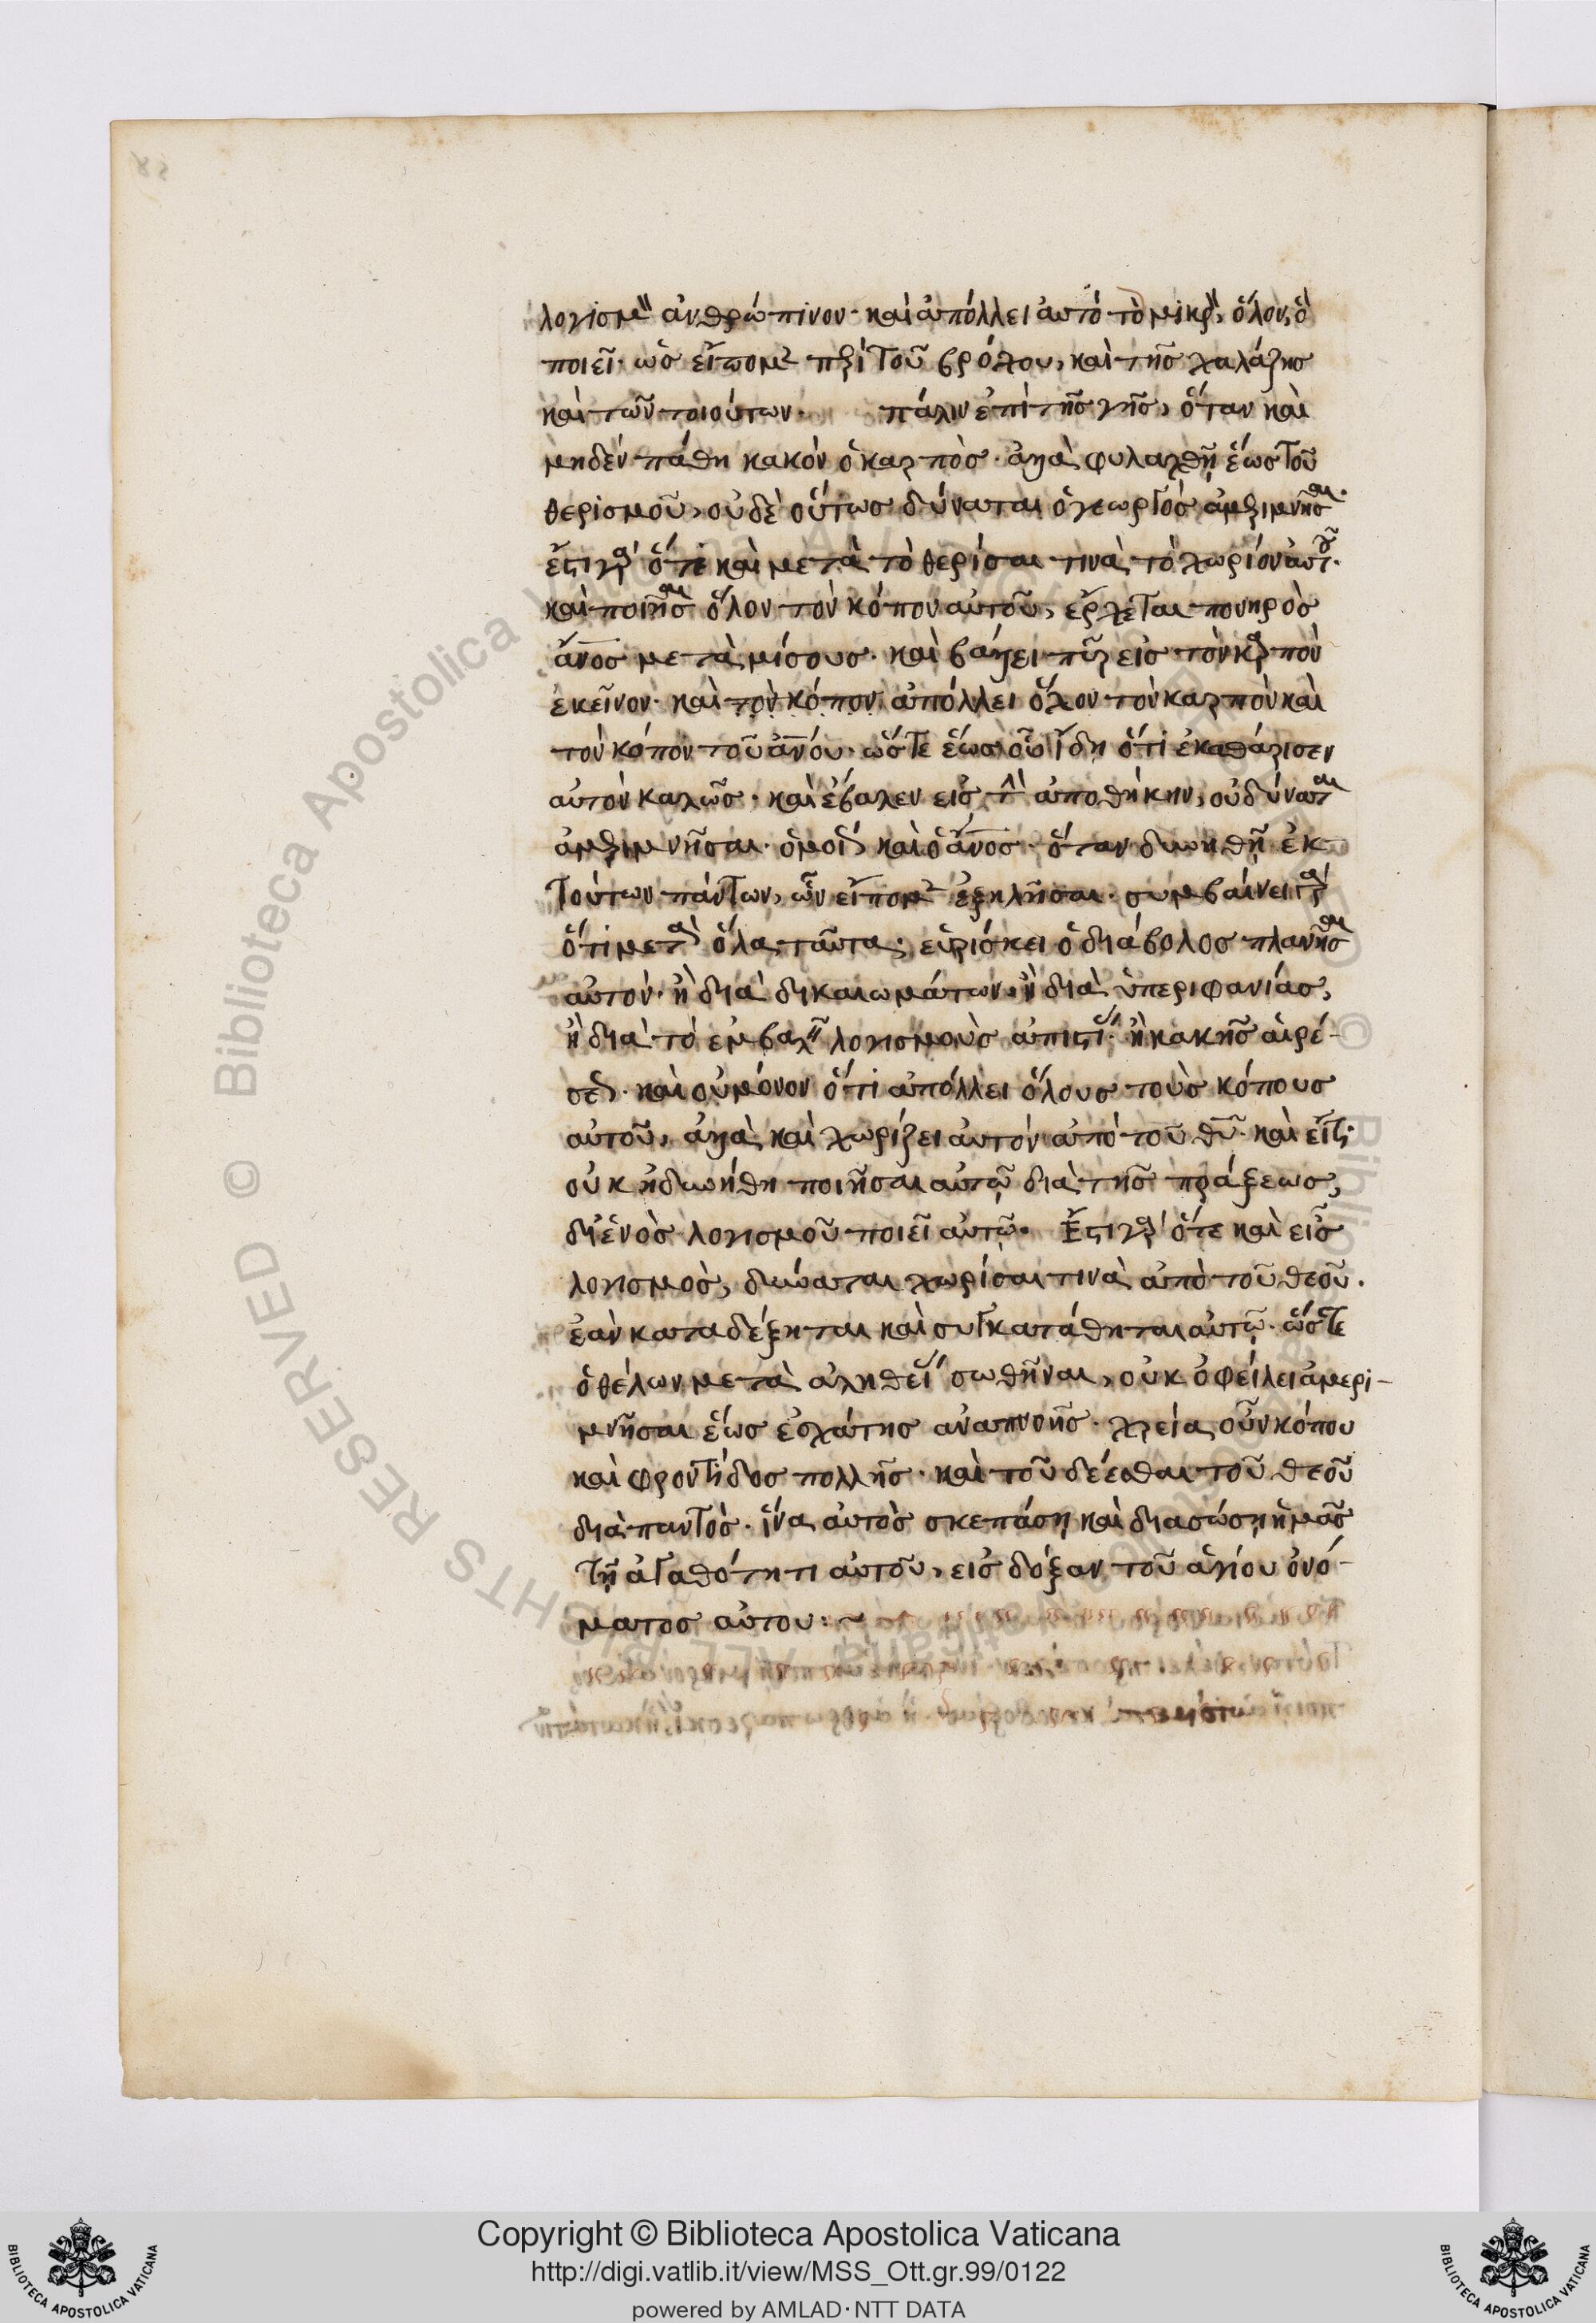 λογισμὸν ἀνθρώπινον· καὶ ἀπόλλει αὐτὸ τὸ μικρὸν ὅλον, ὃ
ποιεῖ· ὡς εἴπομεν περὶ τοῦ βρόχου, καὶ τῆς χαλάζης
καὶ τῶν τοιούτων· πάλιν ἐπὶ τῆς γῆς, ὅταν καὶ
μηδὲν πάθη κακὸν ὁ καρπὸς· ἀλλὰ φυλαχθῇ ἕως τοῦ
θερισμοῦ, οὐδὲ οὕτως δύναται ὁ γεωργὸς ἀμεριμνῆσαι·
ἔστι γὰρ ὅτε καὶ μετὰ τὸ θερίσαι τινὰ τὸ χωρίον αὐτοῦ·
καὶ ποιῆσαι ὅλον τὸν κόπον αὐτοῦ, ἔρχεται πονηρὸς
ἄνος μετὰ μίσους· καὶ βάλλει πῦρ εἰς τὸν καρπὸν
ἐκεῖνον· καὶ τὸν κόπον ἀπόλλει ὅλον τὸν καρπὸν καὶ
τὸν κόπον τοῦ ἀνου· ὥστε ἕως οὗ ἴδη ὅτι ἐκαθάρισεν
αὐτὸν καλῶς· καὶ ἔβαλεν εἰς τὴν ἀποθήκην, οὐ δύναται
ἀμεριμνῆσαι· ὁμοίως καὶ ὁ ἄνος· ὅταν δυνηθῇ ἐκ
τούτων πάντων, ὧν εἴπομεν ἐξειλῆσαι· συμβαίνει γὰρ
ὅτι μετὰ ὅλα ταῦτα· εὑρίσκει ὁ διάβολος πλανῆσαι
αὐτόν· ἢ διὰ δικαιωμάτων· ἢ διὰ ὑπεριφανίας,
ἢ διὰ τὸ ἐμβαλεῖν λογισμοὺς ἀπιστίας· ἢ κακῆς αἱρέ-
σεως· καὶ οὐ μόνον ὅτι ἀπόλλει ὅλους τοὺς κόπους
αὐτοῦ, ἀλλὰ καὶ χωρίζει αὐτὸν ἀπὸ τοῦ θῦ· καὶ εἴτι
οὐκ ἠδυνήθη ποιῆσαι αὐτῷ διὰ τῆς πράξεως,
δι' ἑνὸς λογισμοῦ ποιεῖ αὐτῷ· Ἔστι γὰρ ὅτε καὶ εἷς
λογισμὸς, δύναται χωρίσαι τινὰ ἀπὸ τοῦ θεοῦ·
ἐὰν καταδέξηται καὶ συγκατάθηται αὐτῷ· ὥστε
ὁ θέλων μετὰ ἀληθείας σωθῆναι, οὐκ ὀφείλει ἀμερι-
μνῆσαι ἕως ἐσχάτης ἀναπνοῆς· χρεία οὖν κόπου
καὶ φροντίδος πολλῆς· καὶ τοῦ δέεσθαι τοῦ θεοῦ
διὰ παντὸς· ἵνα αὐτὸς σκεπάση καὶ διασώση ἡμᾶς
τῇ ἀγαθότητι αὐτοῦ, εἰς δόξαν τοῦ ἁγίου ὀνό-
ματος αὐτου: ~
Copyright © Biblioteca Apostolica Vaticana
http://digi.vatlib.it/view/MSS_Ott.gr.99/0122
powered by AMLAD·NTT DATA